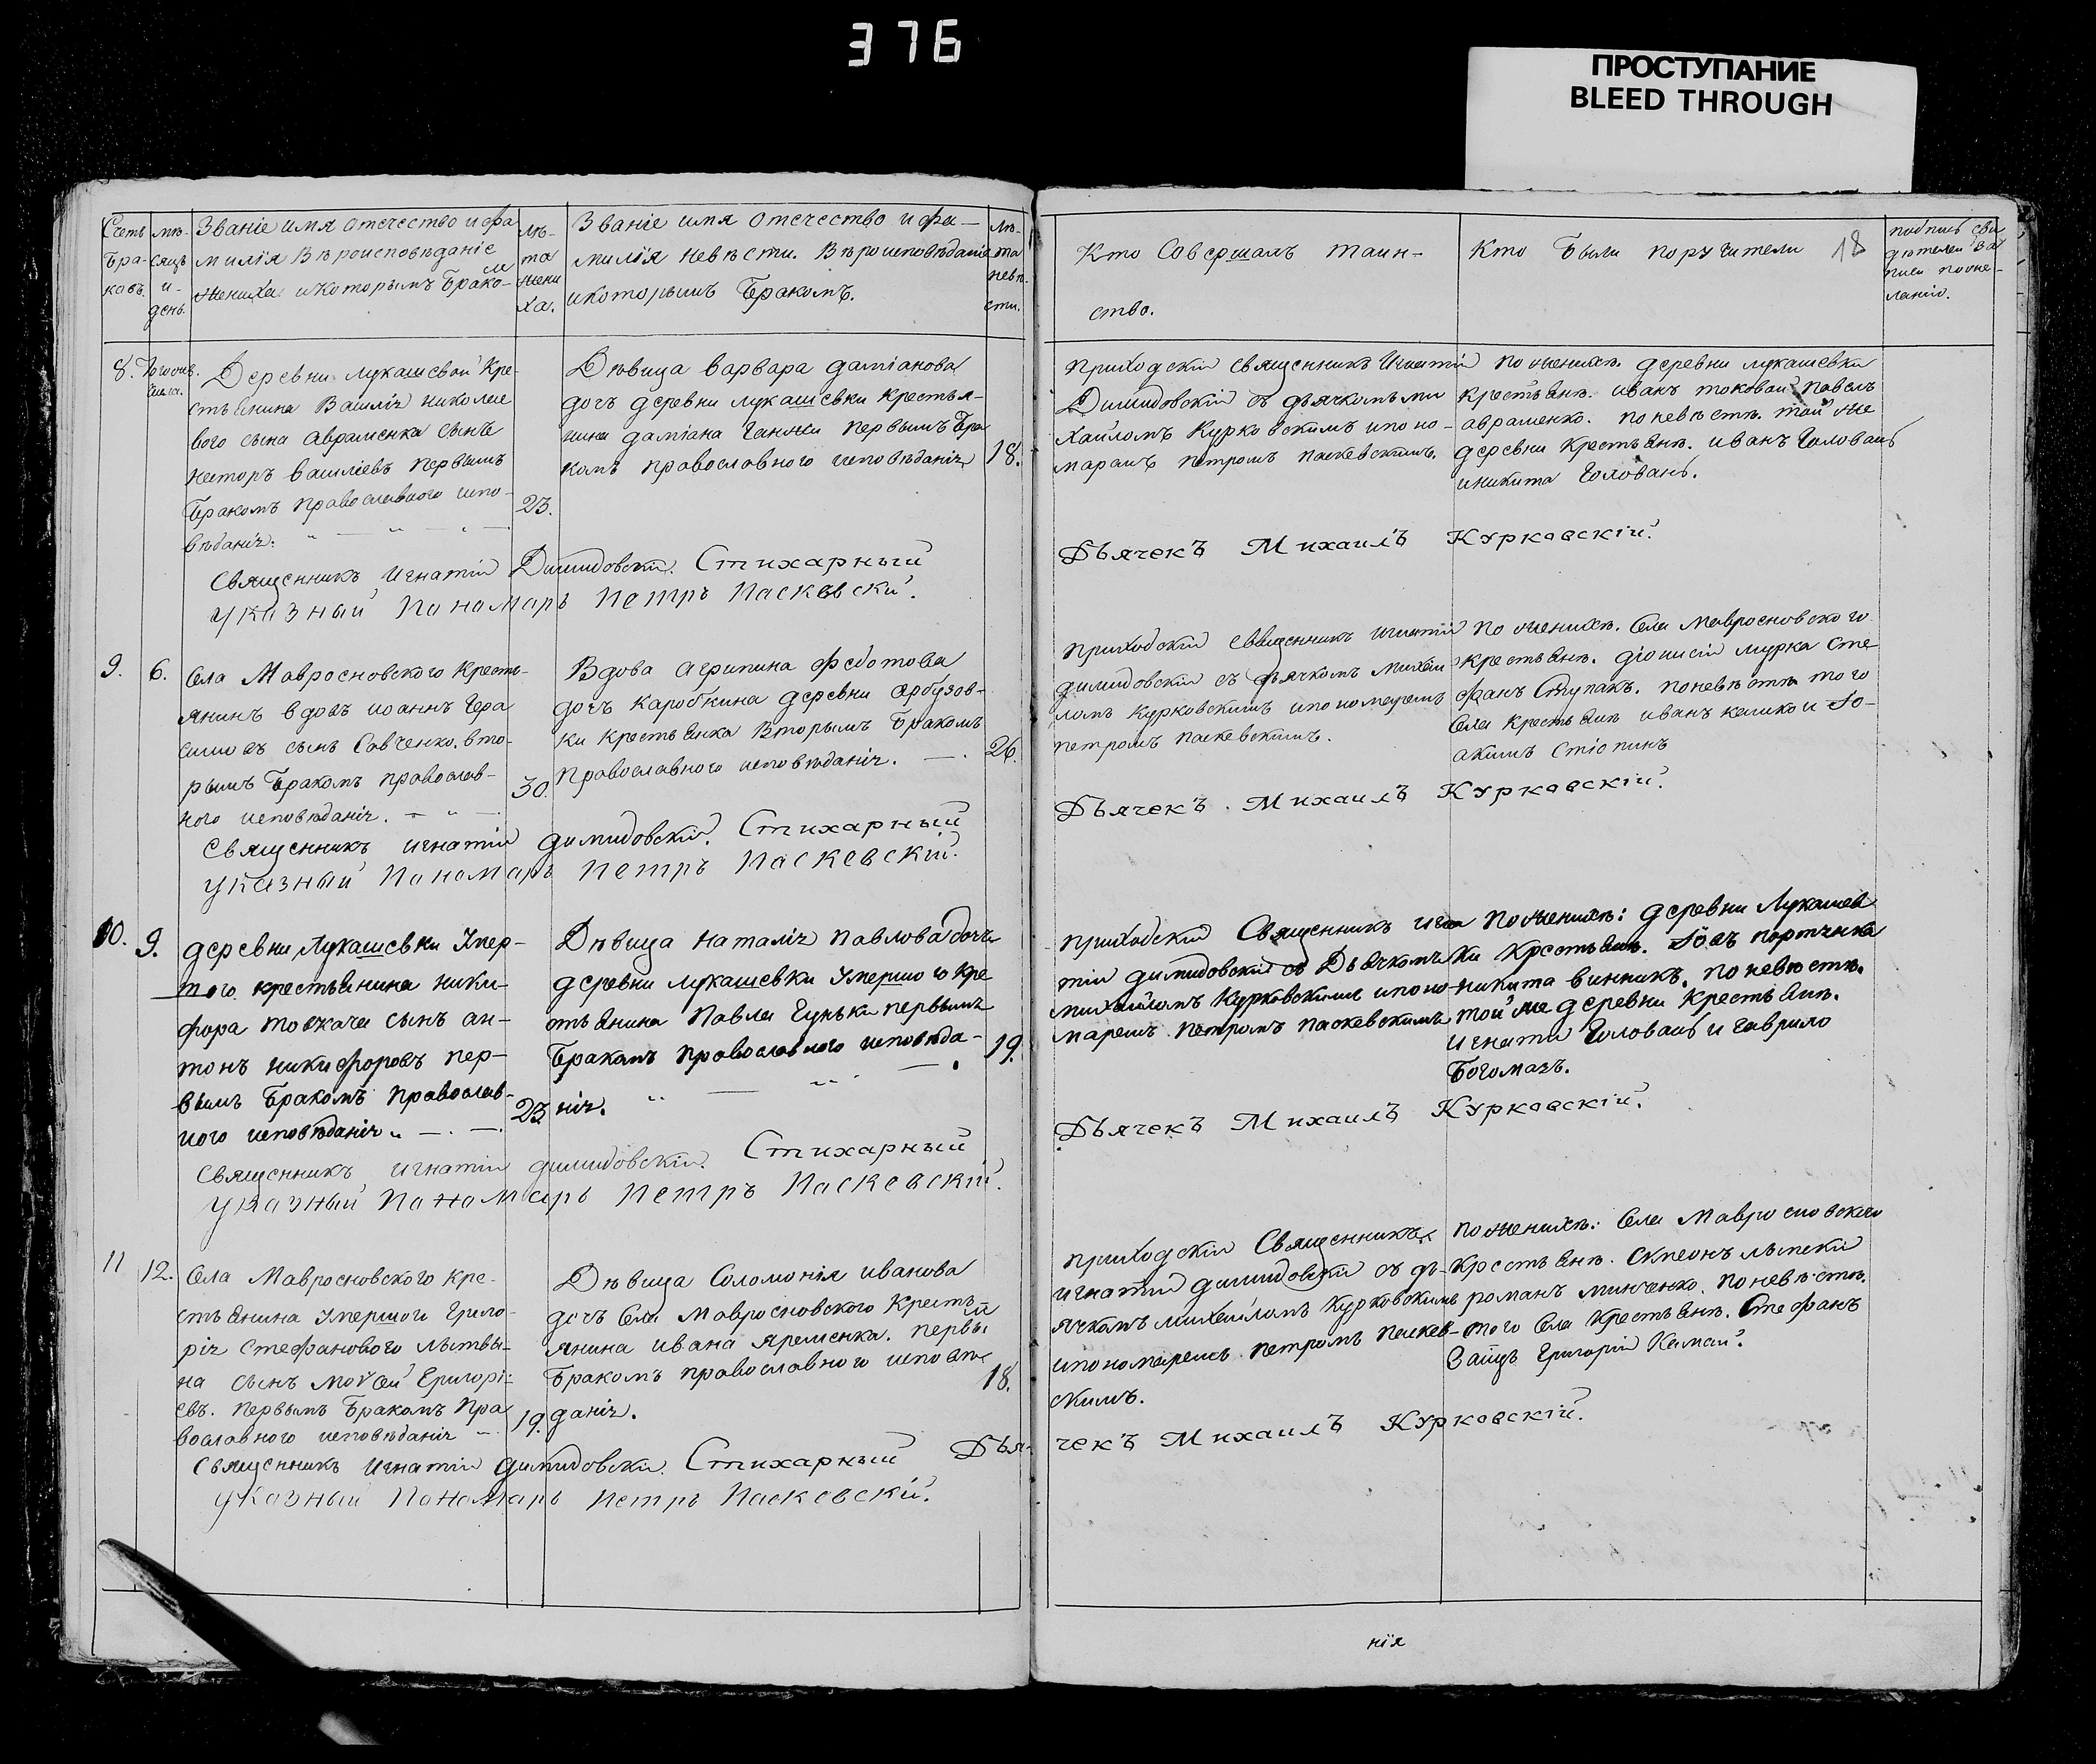 376
ПРОСТУПАНИЕ
BLEED THROUGH
Счетъ
Бра-
ковъ.
мѣ-
сяцъ
и
день.
Званіе имя отечество и фа
милія Вѣроисповѣданіе
жениха и которымъ Брако-
м
лѣ-
та
жени
ха.
Званіе имя отечество и фа-
милія невѣсти. Вѣроисповѣданіе
и которымъ Бракомъ.
лѣ-
та
невѣ-
сти.
Кто Совершалъ таин-
ство.
Кто Были поручители
18
подпись сви
дѣтелей
по же-
ланію.
8.
Деревни Лукашевки Кре-
стьянина Василія николае
вого сына авраменка сынъ
несторъ васильевъ первымъ
Бракомъ православного испо-
вѣданія.
23.
Дѣвица варвара даміанова
дочъ деревни лукашевки крестья-
нина даміана первымъ Бра
комъ православного исповѣданія
18.
Приходскій священникъ Игнатій
Димидовскій съ дьячкомъ ми
хайломъ Курковскимъ и поно-
маремъ петромъ паскевскимъ.
по женихѣ. деревни лукашевки
крестьянѣ. иванъ токовой павелъ
авраменко. по невѣстѣ. той же
деревни крестьянѣ. иванъ Головань
и никита Головань.
Священникъ Игнатій Димидовскій. Стихарный
Дьячекъ Михаилъ Курковскій.
указный Пономарь Петръ Паскевскій.
9.
6.
Села Мавросновского Кресть-
янинъ вдовъ иоаннъ Гера
симовъ сынъ Савченко. вто-
рымъ Бракомъ православ-
ного исповѣданія.
30.
Вдова агрипина федотова
дочъ Каробкина деревни арбузов-
ки крестьянка Вторымъ Бракомъ
православного исповѣданія.
26.
приходскій священникъ игнатій
димидовскій съ дьячкомъ михаи
ломъ Курковскимъ и пономаремъ
петромъ паскевскимъ.
по женихѣ. Села Мавросновского
крестьянѣ. діонисій мурка сте-
фанъ Ступакъ. по невѣстѣ того
Села крестьянѣ иванъ калико и Іо-
акимъ стіопинъ
Священникъ игнатій димидовскій. Стихарный
Дьячекъ Михаилъ Курковскій.
указный Пономарь Петръ Паскевскій.
10.
9.
деревни Лукашевки Умер-
шого крестьянина ники-
фора товкача сынъ ан-
тонъ никифоровъ пер-
вымъ Бракомъ православ-
ного исповѣданія
23.
Дѣвица наталія павлова дочъ
деревни лукашевки Умершого кре
стьянина Павла Гуньки первымъ
Бракомъ православного исповѣда-
нія.
19.
приходскій Священникъ игна
тій димидовскій съ Дьячкомъ
михайломъ Курковскимъ и поно-
маремъ петромъ паскевскимъ
по женихѣ: деревни Лукашев
ки крестьянѣ. Іовъ портянка
никита винникъ. по невѣстѣ.
той же деревни крестьянѣ.
игнатій Головань и гаврило
Богомазъ.
Священникъ игнатій димидовскій. Стихарный
Дьячекъ Михаилъ Курковскій.
указный Пономарь Петръ Паскевскій.
11
12.
Села Мавросновского кре-
стьянина Умершого Григо-
рія стефанового литви-
на сынъ моѵсей Григорі-
евъ. первымъ Бракомъ Пра
вославного исповѣданія
19.
Дѣвица Соломонія иванова
дочъ Села Мавросновского Кресть-
янина ивана яременка. первы
м
Бракомъ православного исповѣ
данія.
18.
приходскій Священникъ
игнатій димидовскій съ дь-
ячкомъ михаиломъ Курковскимъ
и пономаремъ петромъ паскев-
скимъ.
по женихѣ: Села Мавросновского
Крестьянѣ. симеонъ
романъ минченко. по невѣстѣ.
того Села Крестьянѣ. Стефанъ
Заицъ Григорій Камай.
Священникъ Игнатій димидовскій. Стихарный Дья-
чекъ Михаилъ Курковскій.
указный Пономарь Петръ Паскевскій.
нія